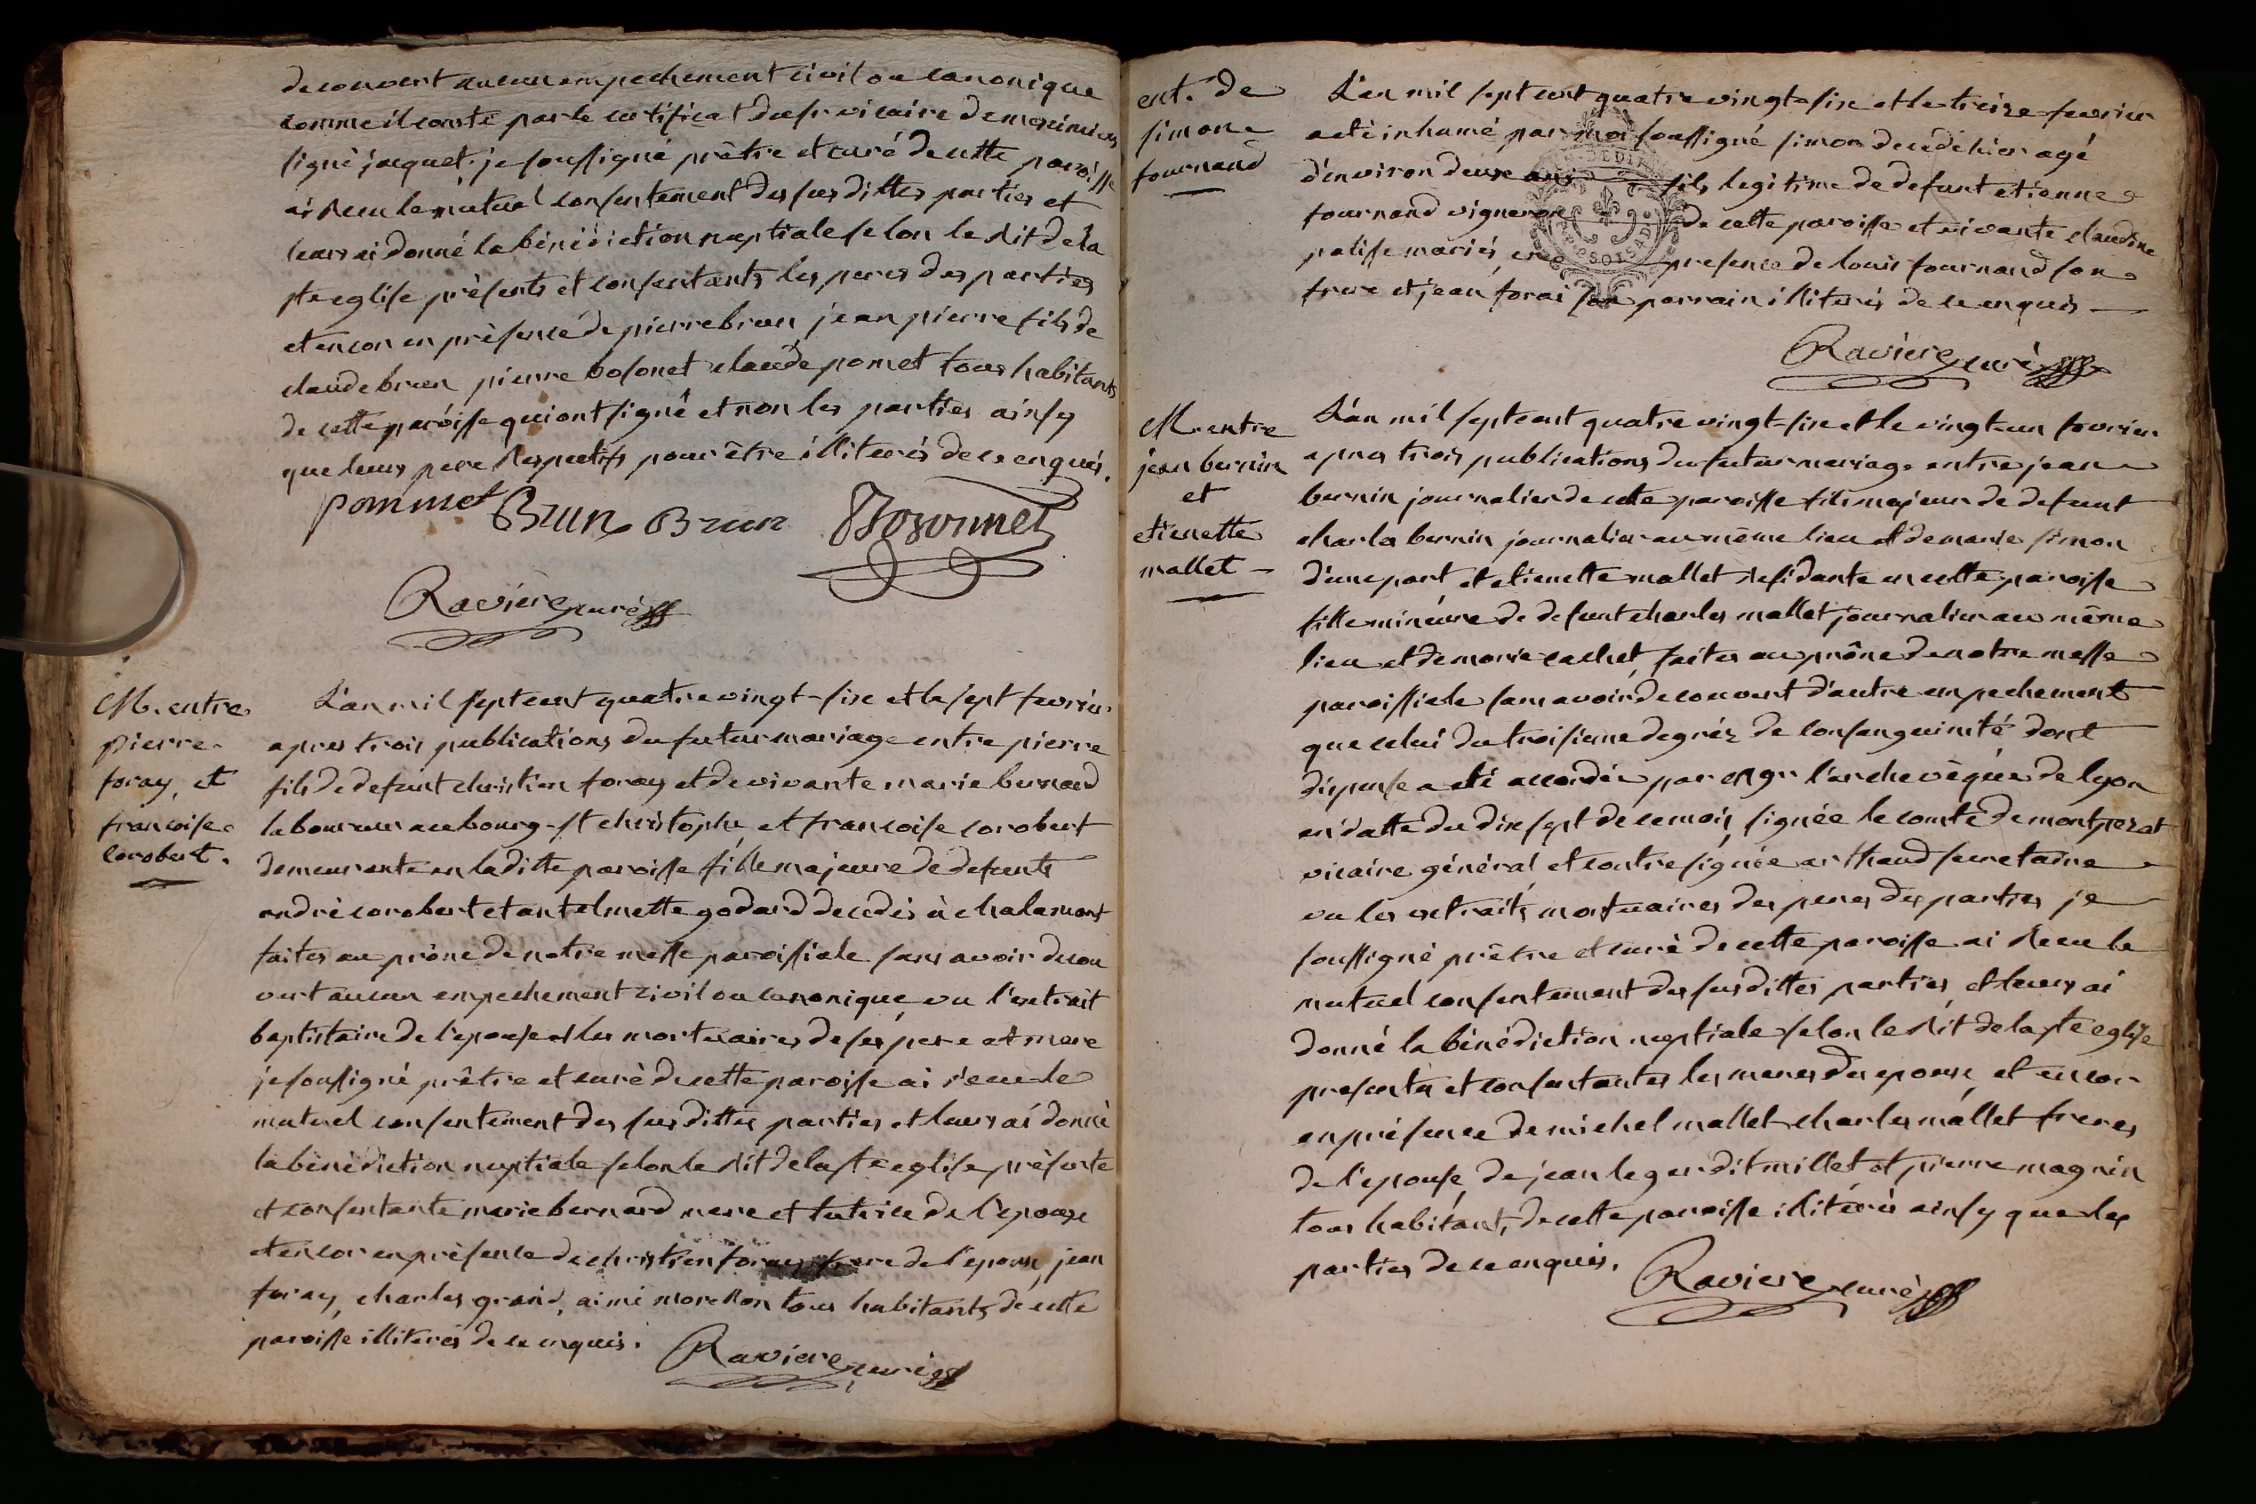 decouvert aucun empechement civil ou canonique
comme il conste par le certificat du sr vicaire de meximieux
signé jacquet. je soussigné prêtre et curé de cette paroisse
ai recu le mutuel consentement des susdittes parties et
leurs ai donné la bénédiction nuptiale selon le rit de la
ste eglise présents et consentants les peres des parties
et encor en présence de pierre brun jean pierre fils de
claude brun pierre bosonet claude pomet tous habitants
de cette paroisse qui ont signé et non les parties ainsy
que leurs pere respectifs pour être illiterés de ce enquis.
pommet Brun Brun Bosonnet
Raviere curé
M. entre
pierre
foray, et
francoise
corobert.
L'an mil sept cent quatre vingt-six et le sept fevrier
apres trois publications du futur mariage entre pierre
fils de defunt christien foray et de vivante marie bernard
laboureur au bourg-st christophe et francoise corobert
demeurante en la ditte paroisse fille majeure de defunts
andré corobert et antelmette godard decedés à chalamont
faites au prône de notre messe paroissiale sans avoir decou
vert aucun empechement civil ou canonique, vu l'extrait
baptistaire de l'epouse et les mortuaires de ses pere et mere
je soussigné prêtre et curé de cette paroisse ai recu le
mutuel consentement des susdittes parties et leurs ai donné
la bénédiction nuptiale selon le rit de la ste eglise présente
et consentante marie bernard mere et tutrice de l'epoux
et encor en présence de christien foray frere de l'epoux, jean
foray, charles grand, aimé morellon tous habitants de cette
paroisse illiterés de ce enquis.
Raviere curé
ent. de
simon
fournand
L'an mil sept cent quatre vingt-six et le treize fevrier
a eté inhumé par moi soussigné simon decedé hier agé
d'environ deux ans fils legitime de defunt etienne
fournand vigneron de cette paroisse et vivante claudine
palisse mariés, en presence de louis fournand son
frere et jean forai son parrain illiterés de ce enquis
Raviere curé
M. entre
jean bernin
et
etienette
mallet
L'an mil sept cent quatre vingt-six et le vingt-un fevrier
apres trois publications du futur mariage entre jean
bernin journalier de cette paroisse fils majeur de defunt
charles bernin journalier au même lieu et de marie simon
d'une part et etienette mallet residante en cette paroisse
fille mineure de defunt charles mallet journalier au même
lieu et de marie cachet faites au prône de notre messe
paroissiale sans avoir decouvert d'autre empechement
que celui du troisieme degréz de consanguinité dont
dispense a eté accordée par mgr l'archevêque de lyon
en datte du dix sept de ce mois, signée le comte de montperat
vicaire général et contresignée arthaud secretaire
vu les extraits mortuaires des peres des parties je
soussigné prêtre et curé de cette paroisse ai recu le
mutuel consentement des susdittes parties, et leurs ai
donné la bénédiction nuptiale selon le rit de la ste eglise
presentes et consentantes les meres des epoux, et encor
en présence de michel mallet charles mallet freres
de l'epouse, de jean leger dit millet et pierre magnin
tous habitants de cette paroisse illiterés ainsy que les
parties de ce enquis.
Raviere curé